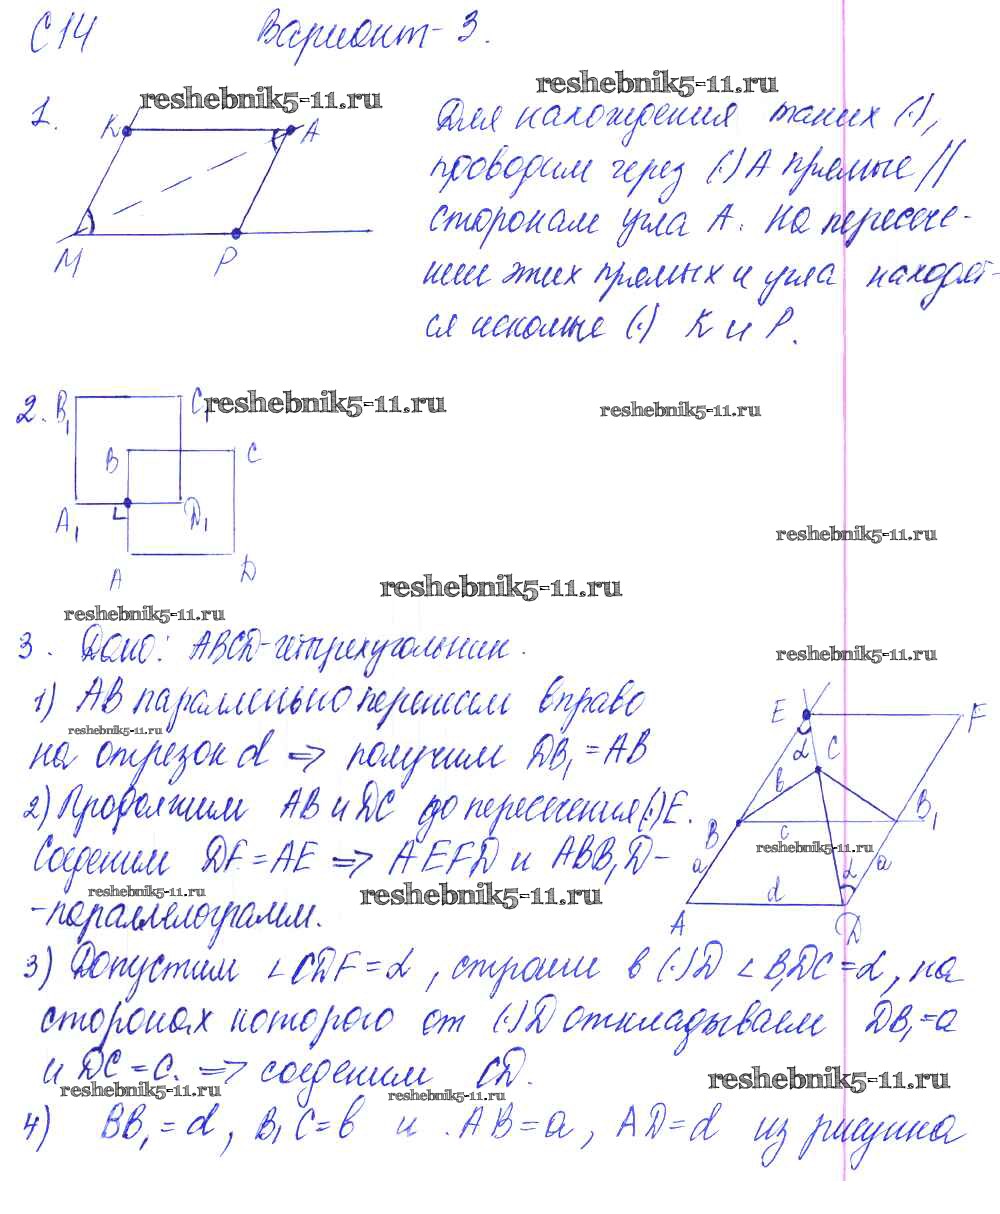 С 14 Вариант - 3.
reshebnik5-11.ru
reshebnik5-11.ru
1. K A
M P
Для нахождения таких (·),
проводим через (·) А прямые //
сторонам угла А. На пересече-
нии этих прямых и угла находят-
ся искомые (·) К и Р.
2. B1 C1
reshebnik5-11.ru
reshebnik5-11.ru
B C
A1 D1
A D
reshebnik5-11.ru
reshebnik5-11.ru
reshebnik5-11.ru
3. Дано: ABCD - четырехугольник.
reshebnik5-11.ru
1) АВ параллельно перенесем вправо
reshebnik5-11.ru
на отрезок d => получим DB1 = AB
2) Продолжим АВ и DC до пересечения (·) Е.
Соединим DF = AE => AEFD и ABB1D -
reshebnik5-11.ru
reshebnik5-11.ru
- параллелограмм.
E F
α C
b
B c B1
reshebnik5-11.ru
a α a
d
A D
3) Допустим ∠CDF = α, строим в (·) D ∠B1DC = α, на
сторонах которого от (·) D откладываем DB1 = a
и DC = C. => соединим CD.
reshebnik5-11.ru
reshebnik5-11.ru
reshebnik5-11.ru
4) BB1 = d, B1C = b и AB = a, AD = d из рисунка